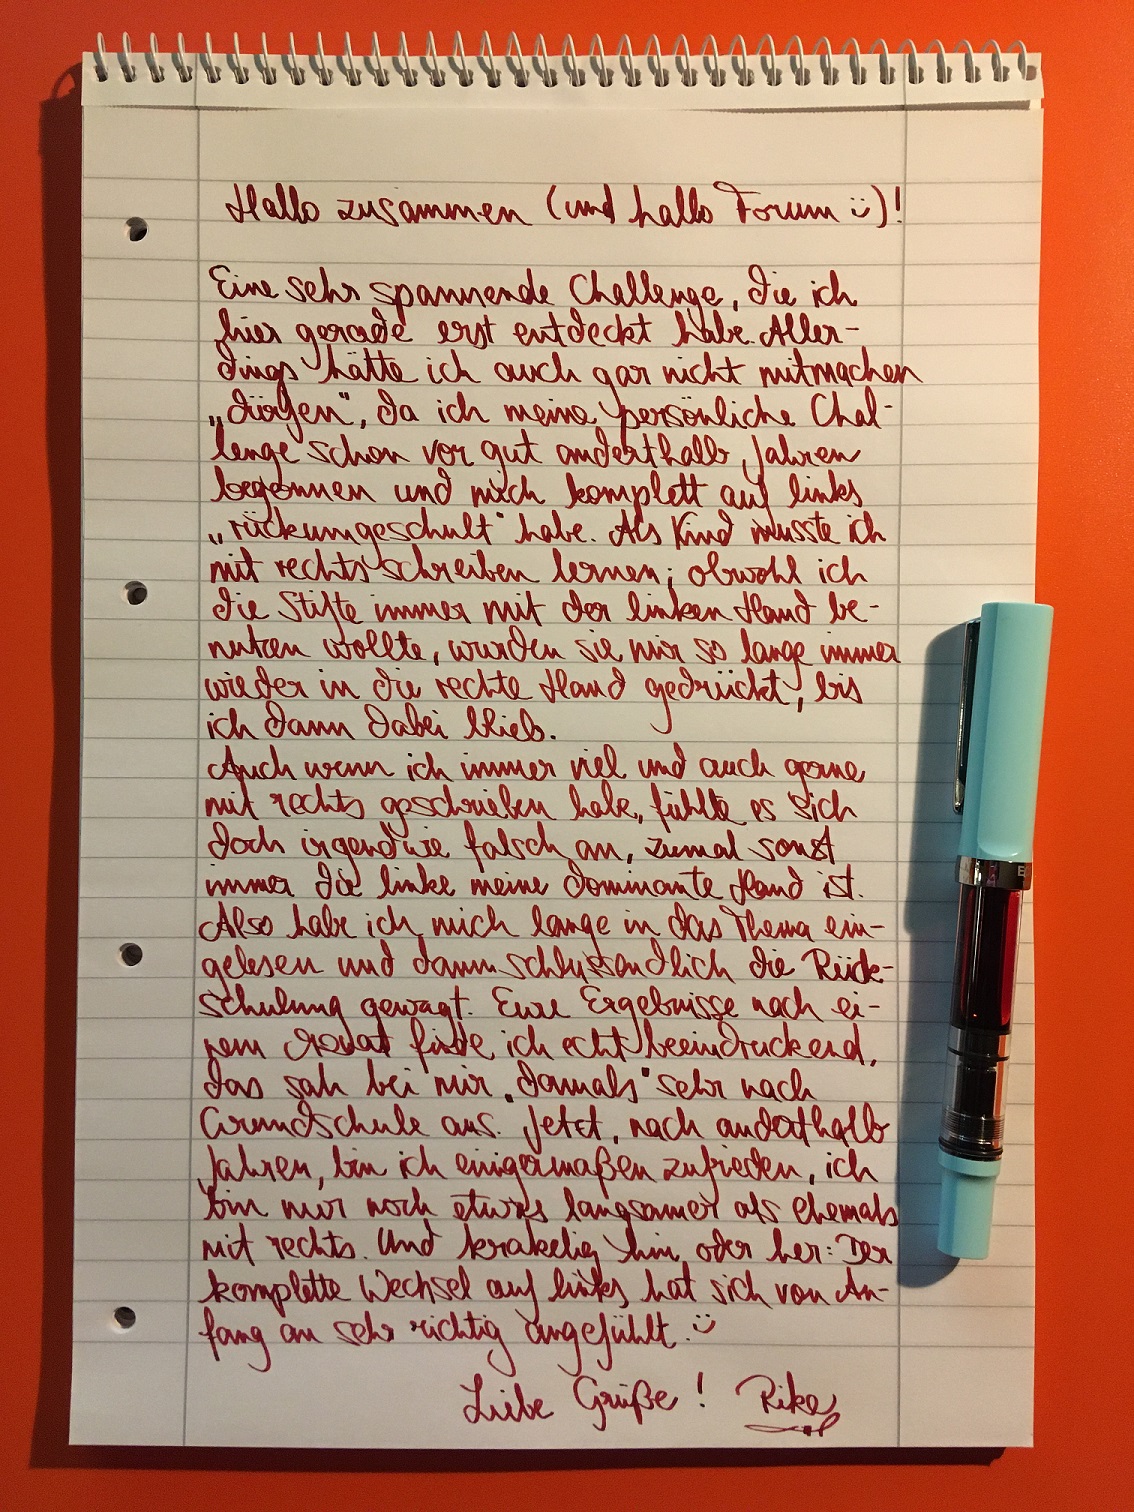 Hallo zusammen (und hallo Forum ü)!
Eine sehr spannende Challenge, die ich
hier gerade erst entdeckt habe. Aller-
dings hätte ich auch gar nicht mitmachen
„dürfen", da ich meine persönliche Chal-
lenge schon vor gut anderthalb Jahren
begonnen und mich komplett auf links
„rückumgeschult" habe. Als Kind musste ich
mit rechts schreiben lernen; obwohl ich
die Stifte immer mit der linken Hand be-
nutzen wollte, wurden sie mir so lange immer
wieder in die rechte Hand gedrückt, bis
ich dann dabei blieb.
Auch wenn ich immer viel und auch gerne
mit rechts geschrieben habe, fühlte es sich
doch irgendwie falsch an, zumal sonst
immer die linke meine dominante Hand ist.
Also habe ich mich lange in das Thema ein-
gelesen und dann schlussendlich die Rück-
schulung gewagt. Eure Ergebnisse nach ei-
nem Monat finde ich echt beeindruckend,
das sah bei mir „damals" sehr nach
Grundschule aus. Jetzt, nach anderthalb
Jahren, bin ich einigermaßen zufrieden, ich
bin nur noch etwas langsamer als ehemals
mit rechts. Und krakelig hin oder her: Der
komplette Wechsel auf links hat sich von An-
fang an sehr richtig angefühlt. ü
Liebe Grüße! Rike